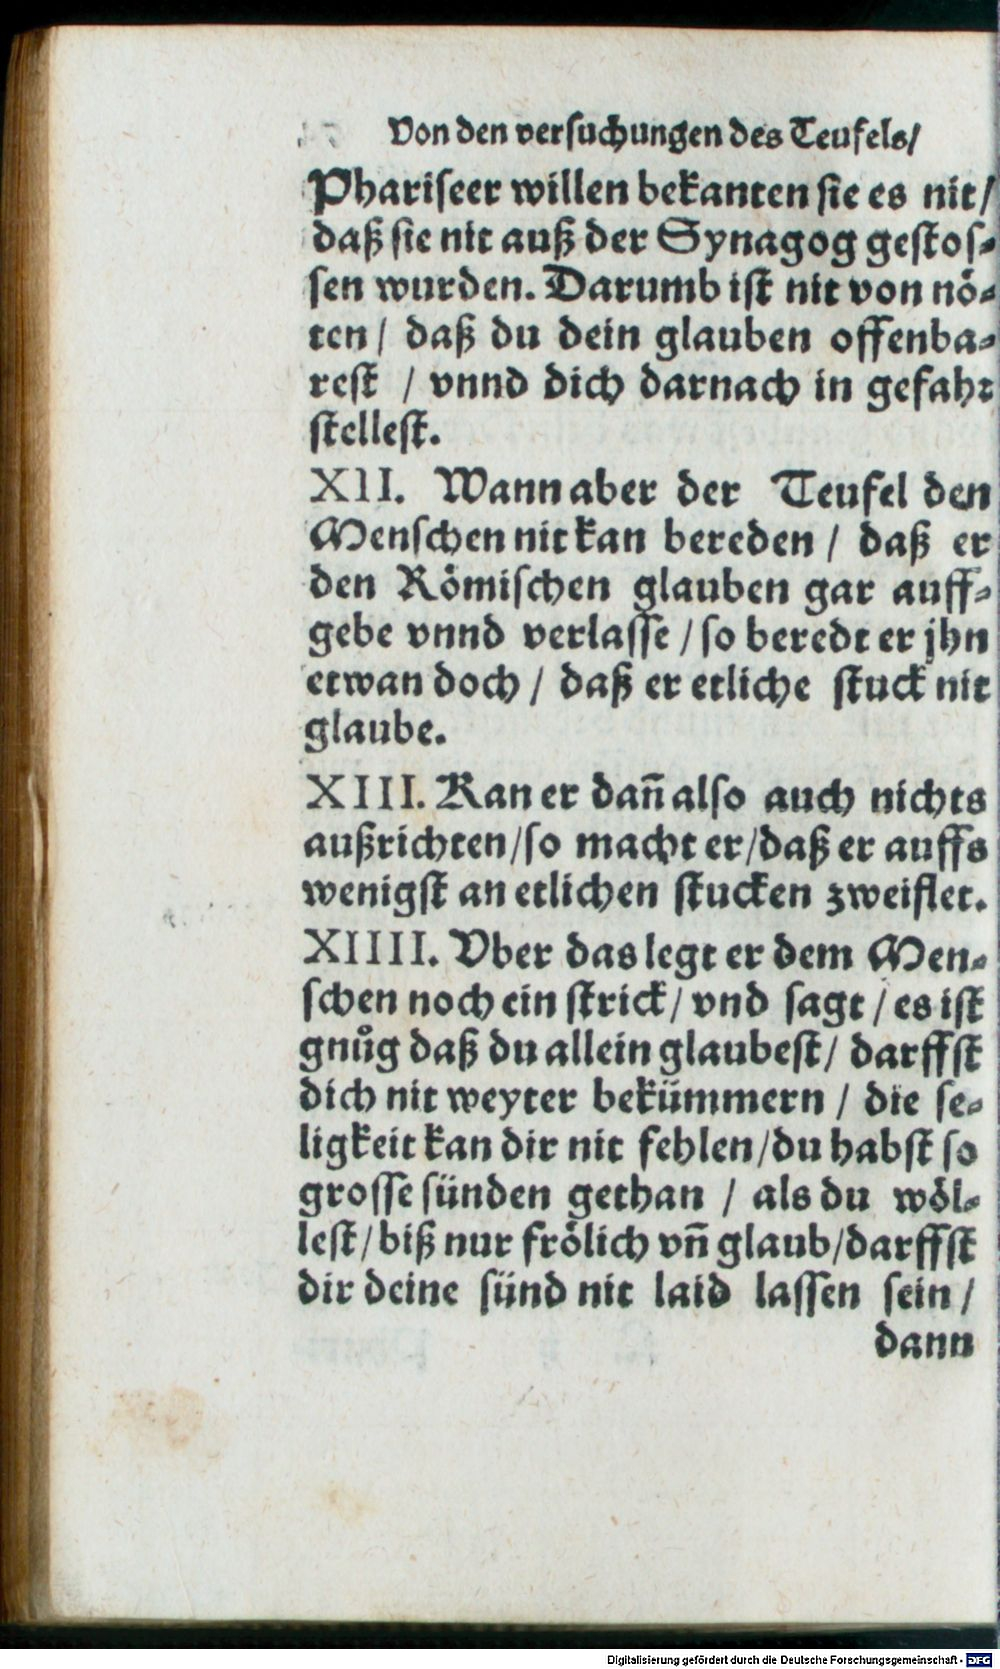 Von den versuchungen des Teufels/
Phariseer willen bekanten sie es nit/
daß sie nit auß der Synagog gestos-
sen wurden. Darumb ist nit von nö-
ten / daß du dein glauben offenba-
rest / vnnd dich darnach in gefahr
stellest.
XII. Wann aber der Teufel den
Menschen nit kan bereden / daß er
den Römischen glauben gar auff-
gebe vnnd verlasse / so beredt er jhn
etwan doch / daß er etliche stuck nit
glaube.
XIII. Kan er dañ also auch nichts
außrichten/so macht er/daß er auffs
wenigst an etlichen stucken zweiflet.
XIIII. Vber das legt er dem Men-
schen noch ein strick/ vnd sagt / es ist
gnůg daß du allein glaubest/ darffst
dich nit weyter bekümmern / die se-
ligkeit kan dir nit fehlen/du habst so
grosse sünden gethan / als du wöl-
lest/biß nur frölich vñ glaub/darffst
dir deine sünd nit laid lassen sein /
dann
Digitalisierung gefördert durch die Deutsche Forschungsgemeinschaft - DFG